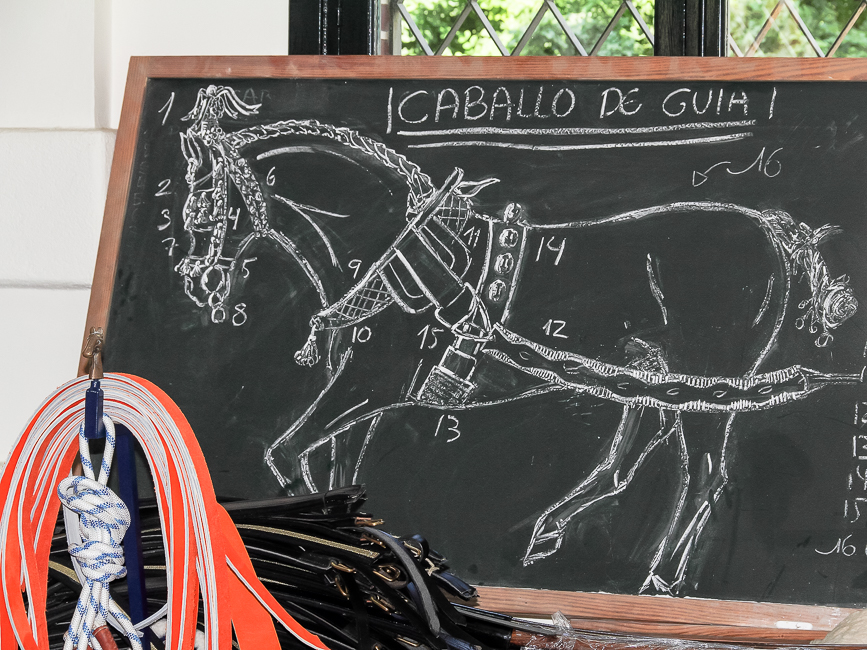 ¡CABALLO DE GUIA!
16
1
2
3
7
4
6
5
8
9
10
11
14
15
12
13
12
13
14
15
16